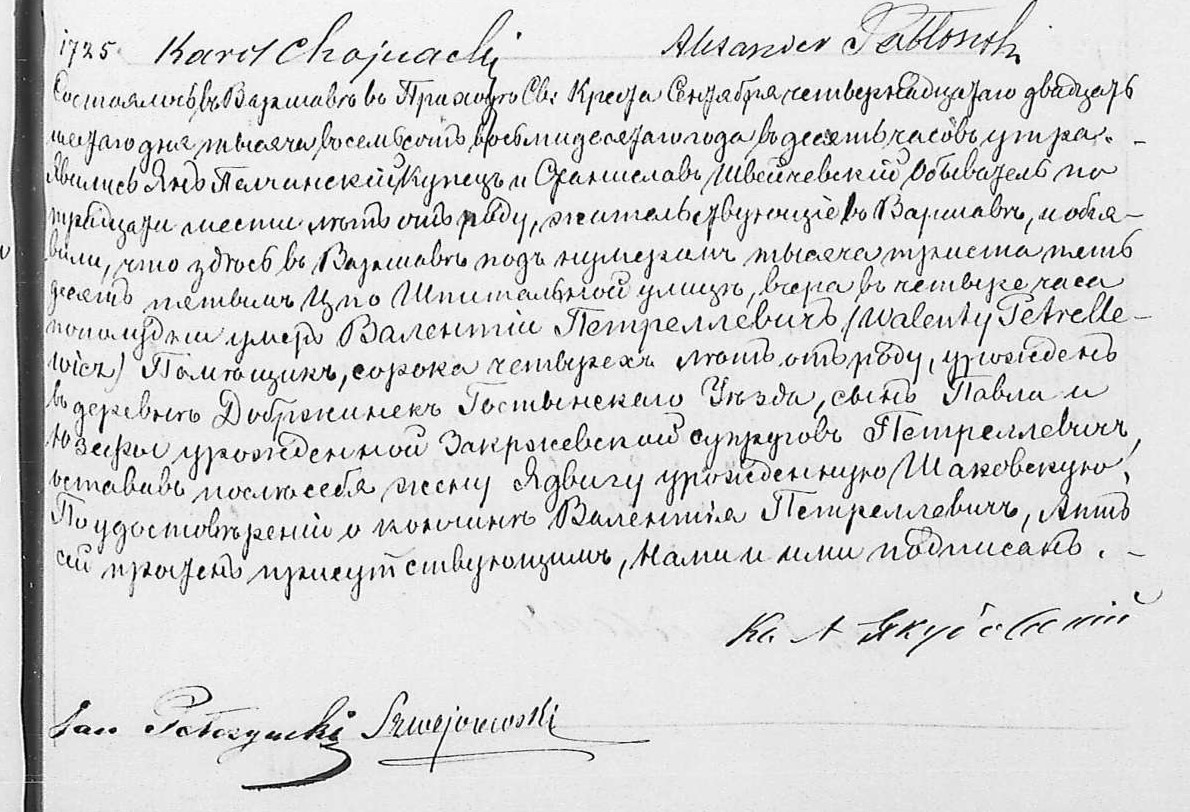 1725 Karol Chojnacki Alexander Jabłonski
Состоялось въ Варшавѣ въ Приходѣ Св: Креста Сентября четвернадцатаго двадцать
шестаго дня тысяча восемьсотъ восьмидесятаго года въ десять часовъ утра. –
Явились Янъ Пелчинский Купецъ и Станиславъ Швейчевский Обыватель по
тридцати шести лѣтъ отъ роду, жительствующіе въ Варшавѣ, и объя–
вили, что здѣсь въ Варшавѣ подъ нумеромъ тысяча триста пять
десятъ пятымъ Ц по Шпитальной улицѣ, вчера въ четыре часа
пополудни умеръ Валентій Петреллевичъ (Walenty Petrelle–
wicz) Помѣщикъ, сорока четырехъ лѣтъ отъ роду, урожденъ
въ деревнѣ Добржинекъ Гостынскаго Уѣзда, сынъ Павла и
Юзефы урожденной Закржевской супруговъ Петреллевичъ,
оставивъ послѣ себя жену Ядвигу урожденную Шаковскую.
По удостовѣреніи о кончинѣ Валентія Петреллевичъ, Актъ
сей прочтенъ присутствующимъ, Нами и ими подписанъ. –
Кс А Якубовскій
Jan Pełczyński Szwejcewski